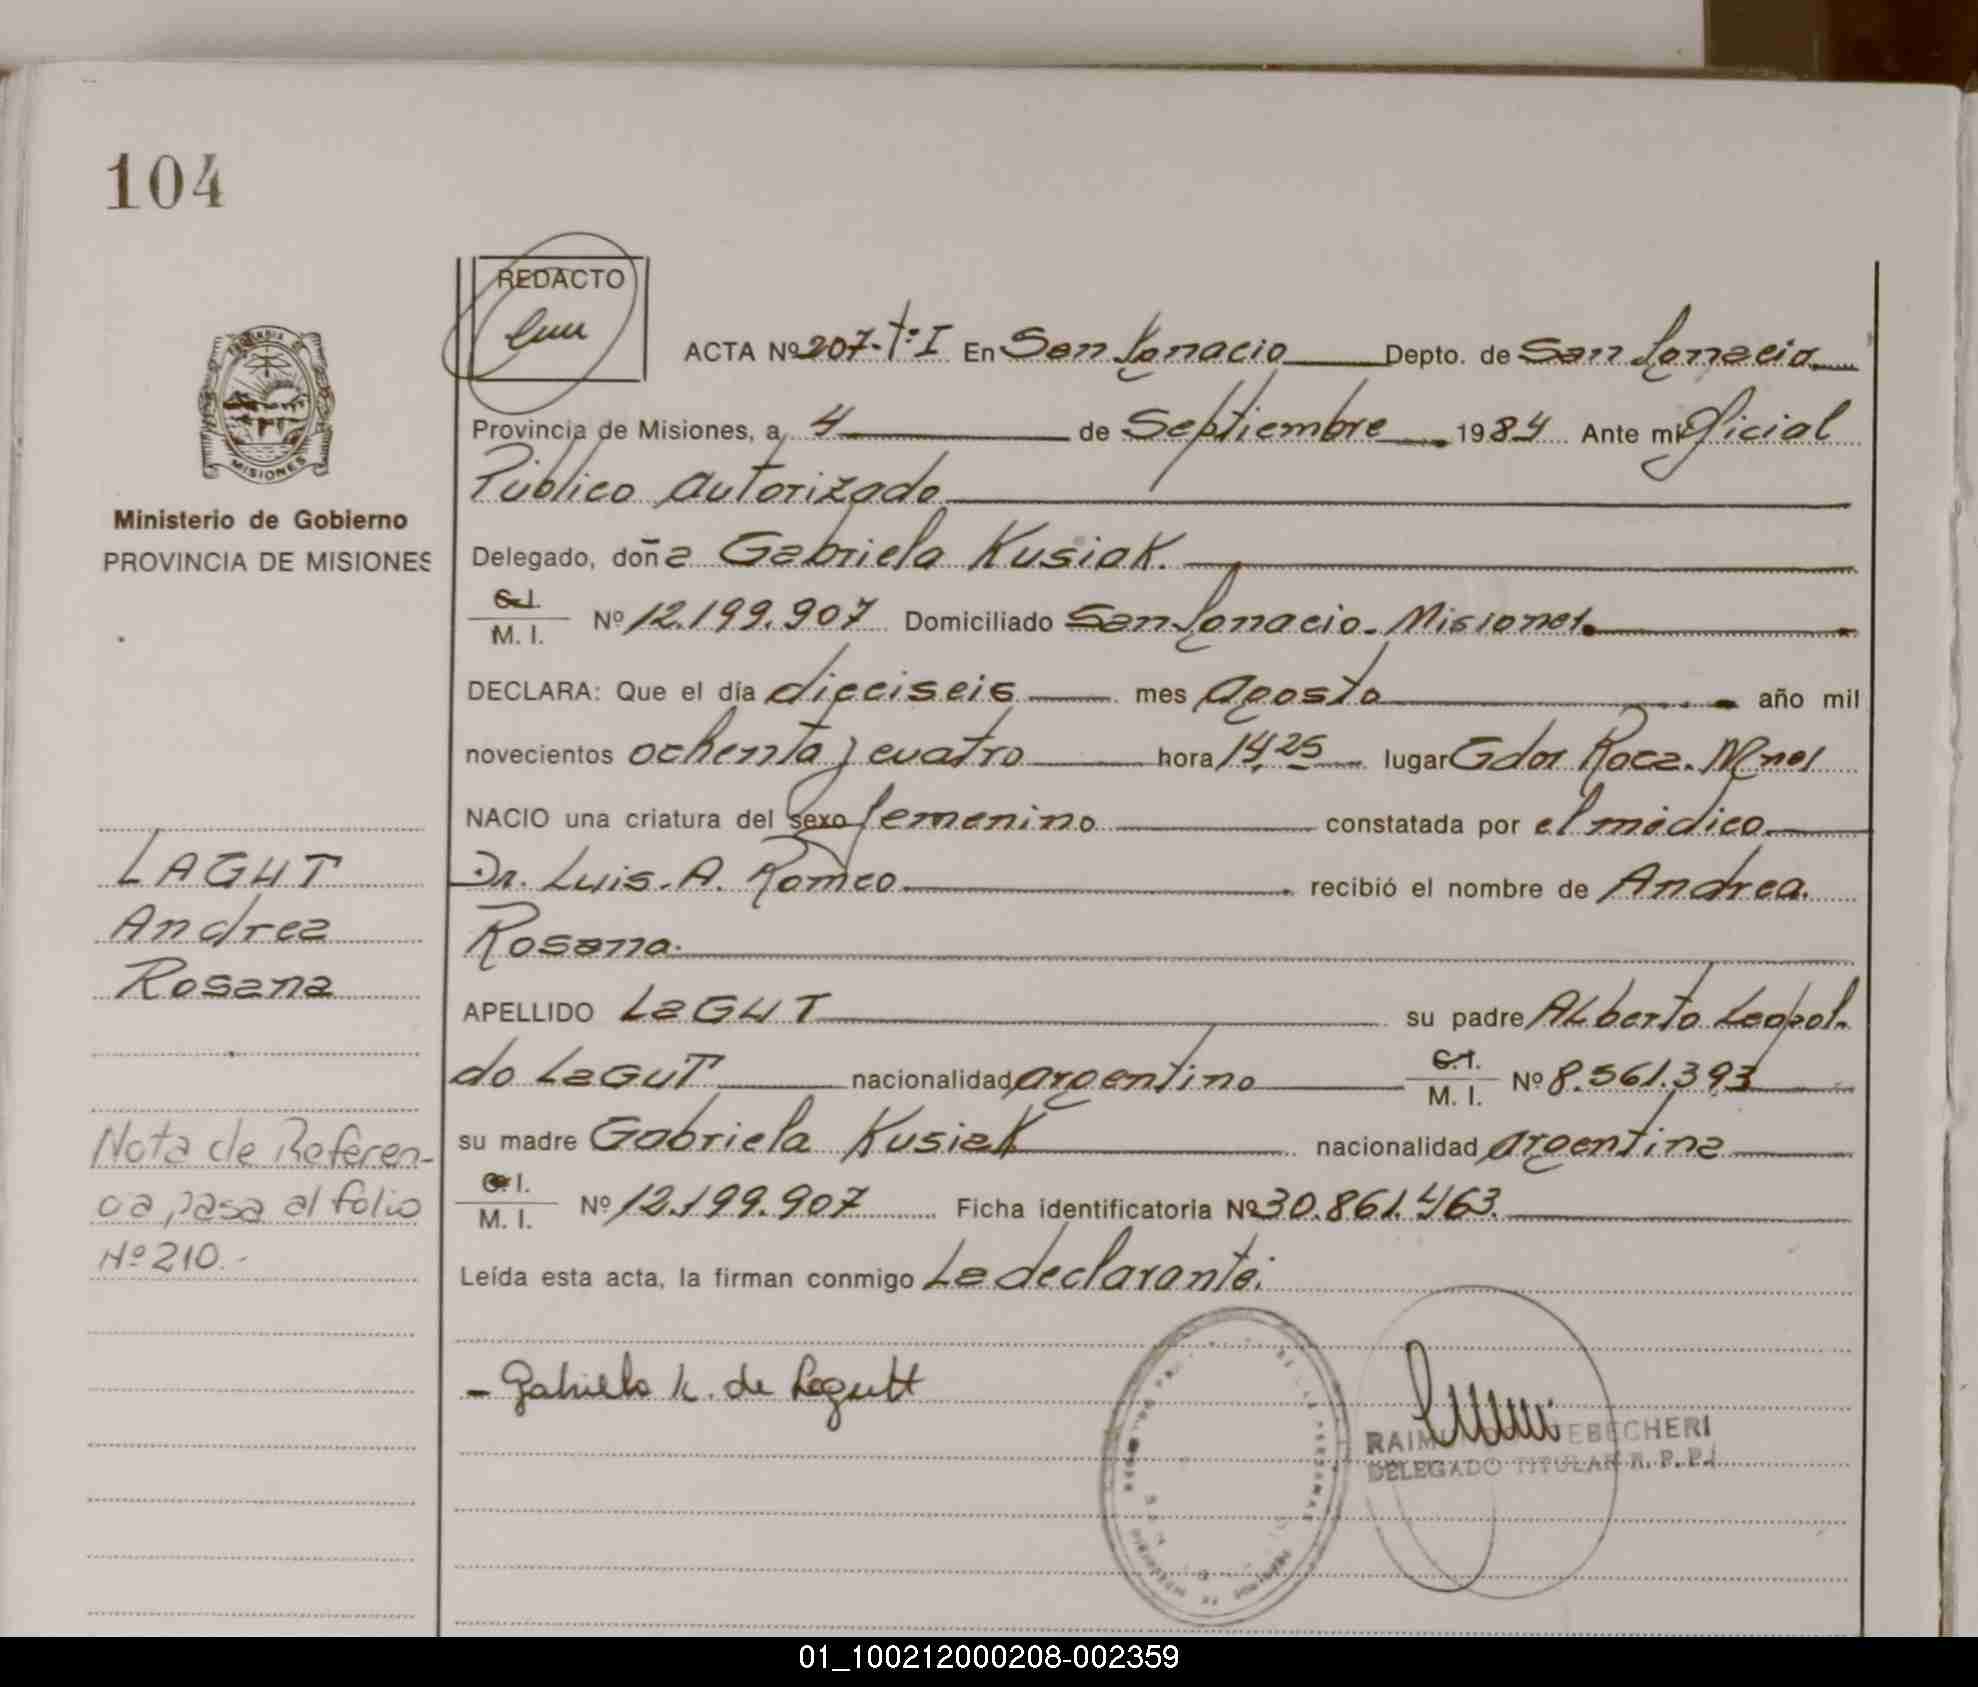 104
REDACTO
ACTA Nº 207-tº I En San Ignacio Depto. de San Ignacio
Provincia de Misiones, a 4 de Septiembre 1984 Ante mi Oficial
Público Autorizado
Delegado, doña Gabriela Kusiak.
C.I.
M. I. Nº 12.199.907 Domiciliado San Ignacio. Misiones.
DECLARA: Que el día dieciseis mes Agosto año mil
novecientos ochenta y cuatro hora 14,25 lugar Gdor Roca. Mnes
NACIO una criatura del sexo femenino constatada por el médico
Dr. Luis. A. Romeo recibió el nombre de Andrea.
Rosana.
APELLIDO LaGUT su padre Alberto Leopol-
do LaGUT nacionalidad argentino C.I. M. I. Nº 8.561.393
su madre Gabriela Kusiak nacionalidad argentina
C.I.
M. I. Nº 12.199.907 Ficha identificatoria Nº 30.861.463.
Leída esta acta, la firman conmigo La declarante.
- Gabriela K. de Legutt
DELEGADO TITULAR R. P. P.
MISIONES
Ministerio de Gobierno
PROVINCIA DE MISIONES
LAGUT
Andrea
Rosana
Nota de Referen-
cia pasa al folio
Nº 210.-
01_100212000208-002359